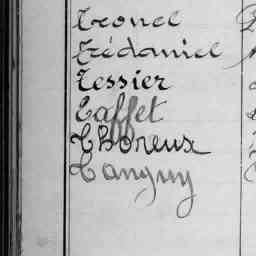 Tronel
Trédaniel
Tessier
Taffet
Thoreux
Tanguy